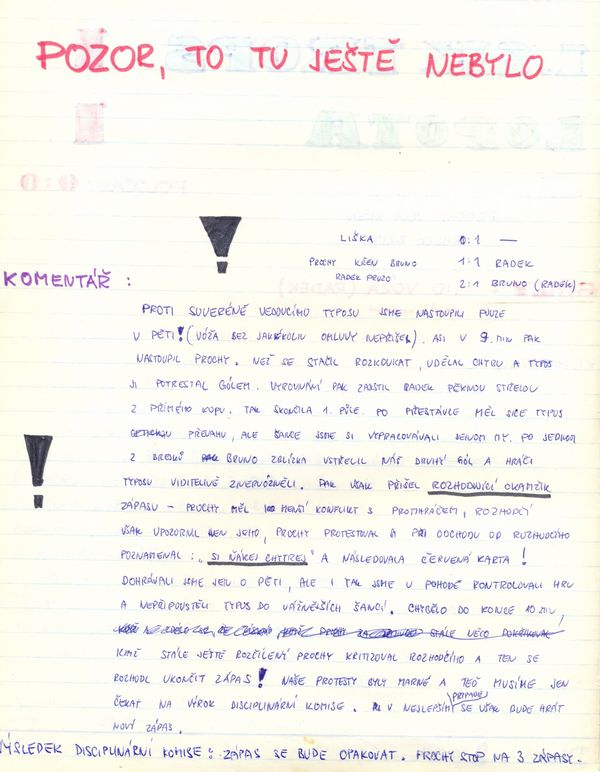 POZOR, TO TU JEŠTĚ NEBYLO
LIŠKA 0:1 —
PROCHY KŘEN BRUNO 1:1 RADEK
RADEK PRUZO 2:1 BRUNO (RADEK)
KOMENTÁŘ :
PROTI SUVERÉNĚ VEDOUCÍMU TYPOSU JSME NASTOUPILI POUZE
V PĚTI! (VÓŽA BEZ JAKÉKOLIV OMLUVY NEPŘIŠEL). ASI V 9. MIN PAK
NASTOUPIL PROCHY. NEŽ SE STAČIL ROZKOUKAT, UDĚLAL CHYBU A TYPOS
JI POTRESTAL GÓLEM. VYROVNÁNÍ PAK ZAJISTIL RADEK PĚKNOU STŘELOU
Z PŘÍMÉHO KOPU. TAK SKONČILA 1. PŮLE. PO PŘESTÁVCE MĚL SICE TYPUS
PŘEVAHU, ALE ŠANCE JSME SI VYPRACOVÁVALI JENOM MY. PO JEDNOM
Z BREJKŮ BRUNO ZBLÍZKA VSTŘELIL NÁŠ DRUHÝ GÓL A HRÁČI
TYPOSU VIDITELNĚ ZNERVÓZNĚLI. PAK VŠAK PŘIŠEL ROZHODUJÍCÍ OKAMŽIK
ZÁPASU – PROCHY MĚL MENŠÍ KONFLIKT S PROTIHRÁČEM, ROZHODČÍ
VŠAK UPOZORNIL JEN JEHO, PROCHY PROTESTOVAL A PŘI ODCHODU OD ROZHODČÍHO
POZNAMENAL : „SI ŇÁKEJ CHYTREJ" A NÁSLEDOVALA ČERVENÁ KARTA !
DOHRÁVALI JSME JEN O PĚTI, ALE I TAK JSME V POHODĚ KONTROLOVALI HRU
A NEPŘIPOUŠTĚLI TYPUS DO VÁŽNĚJŠÍCH ŠANCÍ. CHYBĚLO DO KONCE 10 MIN,
KDYŽ STÁLE JEŠTĚ ROZČÍLENÝ PROCHY KRITIZOVAL ROZHODČÍHO A TEN SE
ROZHODL UKONČIT ZÁPAS! NAŠE PROTESTY BYLY MARNÉ A TEĎ MUSÍME JEN
ČEKAT NA VÝROK DISCIPLINÁRNÍ KOMISE. V NEJLEPŠÍM PŘÍPADĚ SE VŠAK BUDE HRÁT
NOVÝ ZÁPAS.
VÝSLEDEK DISCIPLINÁRNÍ KOMISE : ZÁPAS SE BUDE OPAKOVAT. PROCHY STOP NA 3 ZÁPASY.